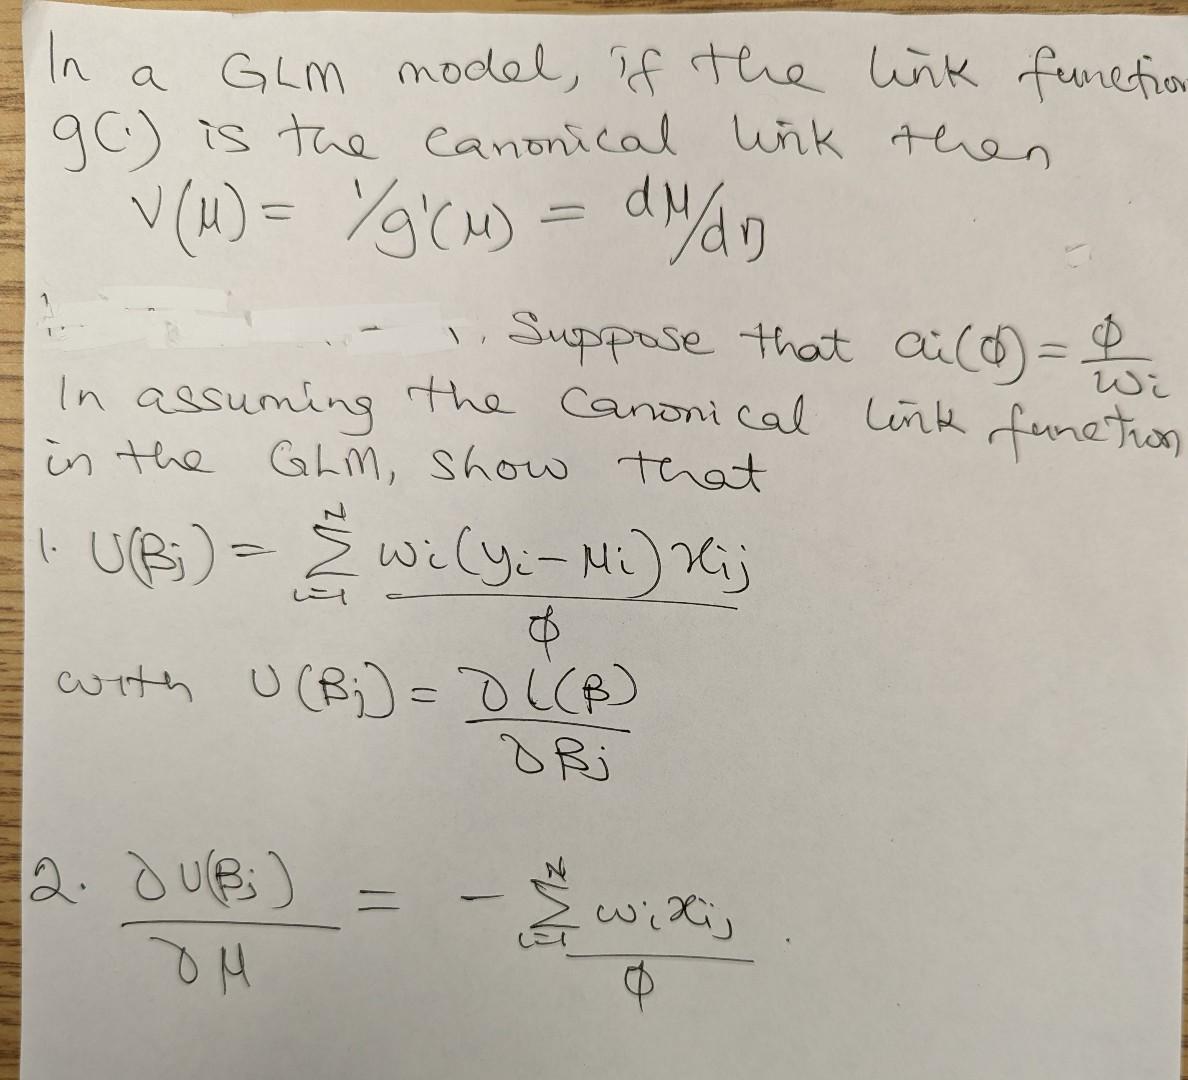 In a GLM model, if the link function
g(.) is the canonical link then
V(μ) = 1/g'(μ) = dμ/dη
Suppose that ai(ϕ) = ϕ/wi
In assuming the canonical link function
in the GLM, show that
1. U(βj) = Σ_{i=1}^{N} wi(yi-μi)xij / ϕ
with U(βj) = ∂l(β) / ∂βj
2. ∂U(βj) / ∂μ = - Σ_{i=1}^{N} wixij / ϕ .